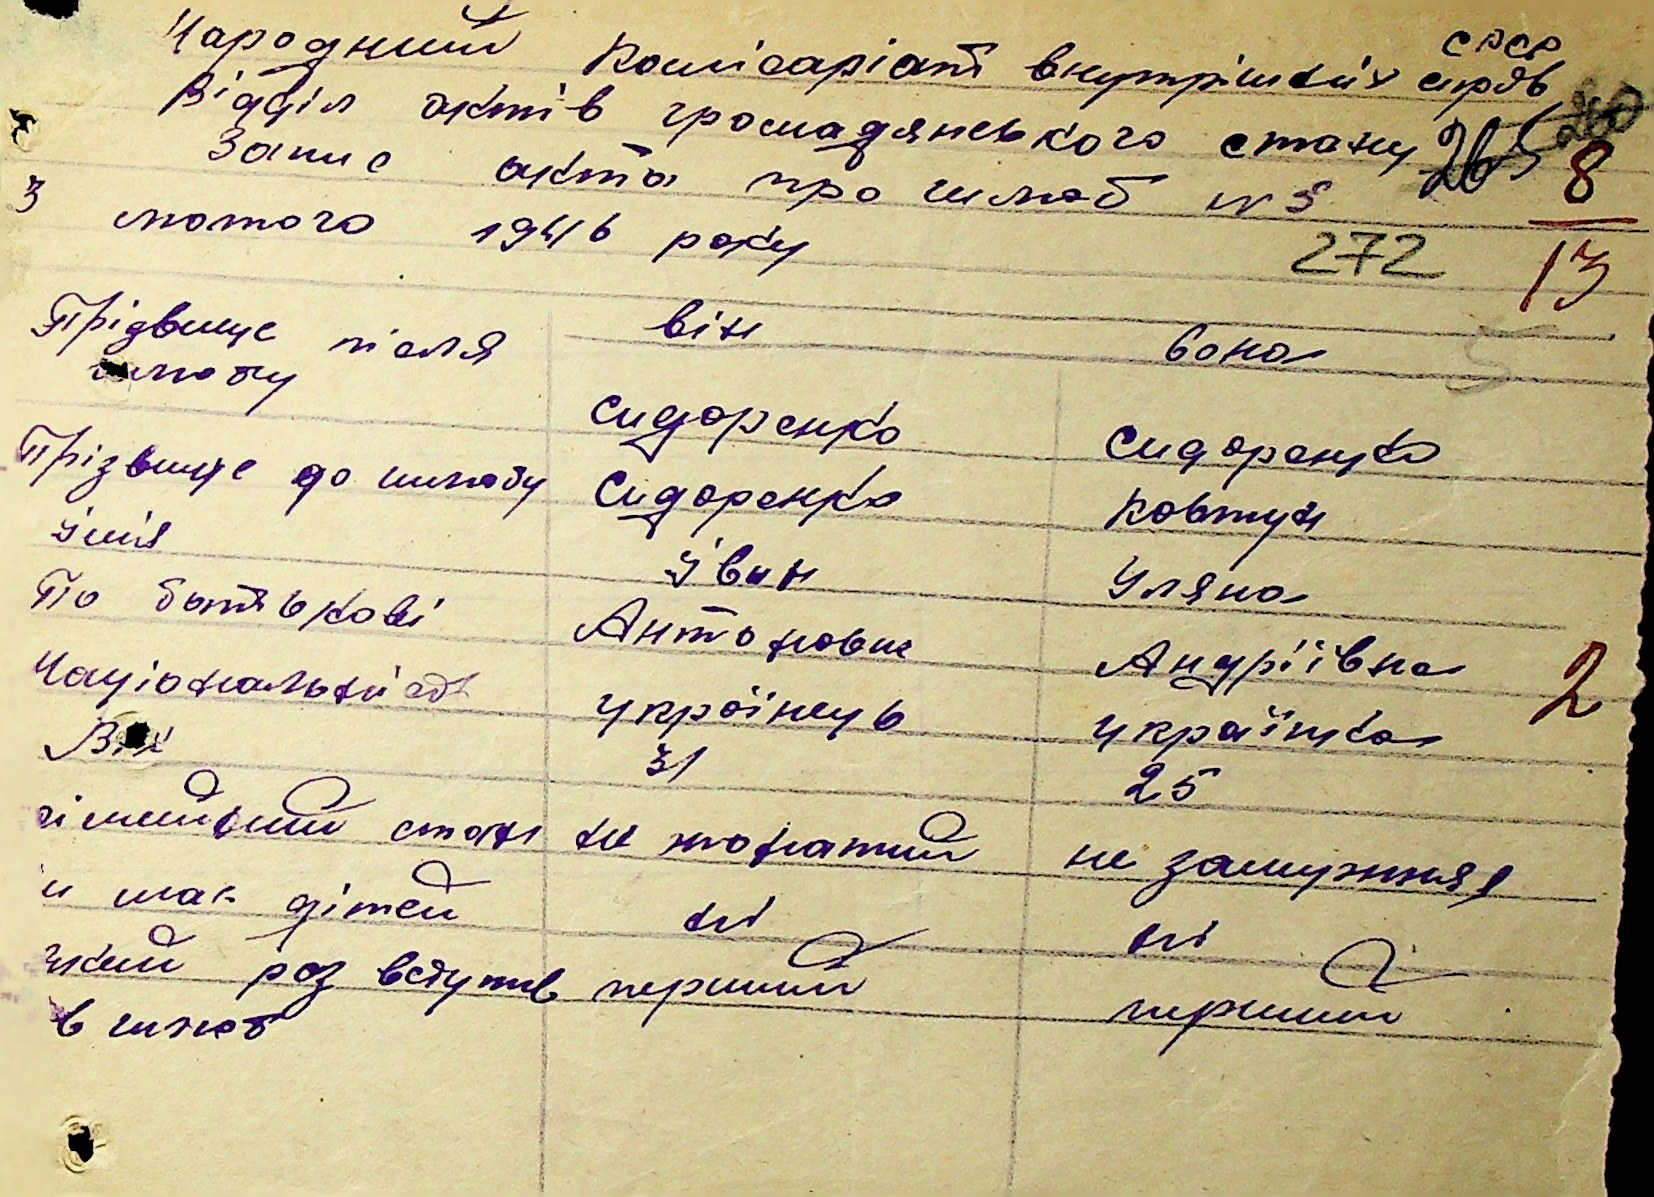 Народний Комісаріат внутрішніх справ СРСР
Відділ актів громадянського стану
Запис акта про шлюб № 5
3 лютого 1946 року
265 260
8
13
272
5
він вона
Прідвище після шлюбу Сидоренко Сидоренко
Прізвище до шлюбу Сидоренко Ковтун
Імія Іван Уляна
По батькові Антонович Андріївна
Національність українець українка
Вік 31 25
2
сімейний стан не жонатий не замужняя
має дітей ні ні
який раз вступив перший перший
в шлюб